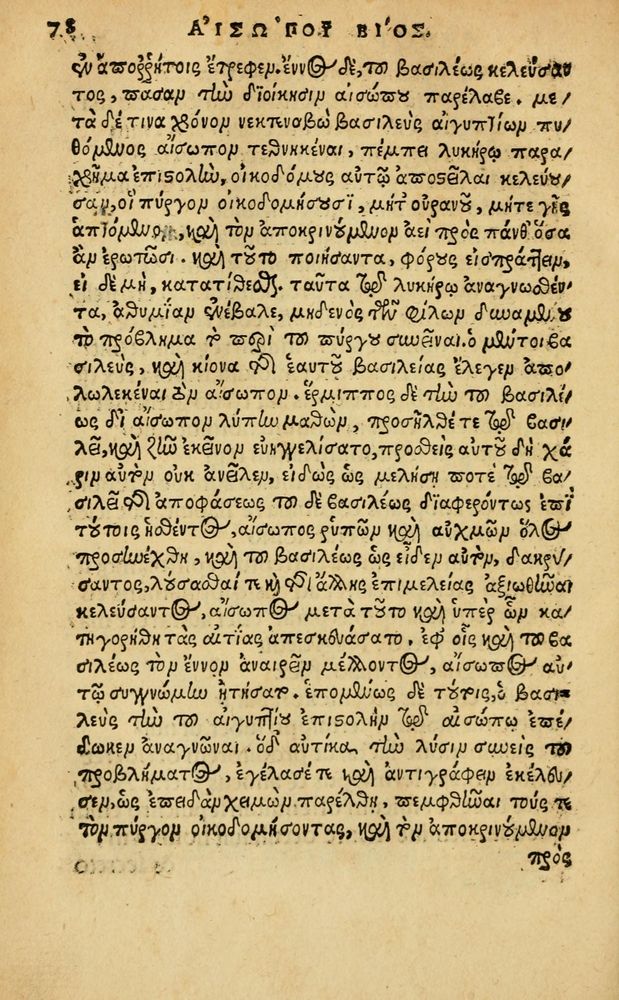 78 ΑἸΣΩ´ΠΟΥ ΒΙ´ΟΣ.
ἐν ἀποῤῥήτοις ἔτρεφεν. ἔννος δὲ, τοῦ βασιλέως κελεύσαν
τος, πᾶσαν τὴν διοίκησιν αἰσώπου παρέλαβε. με/
τὰ δέ τινα χρόνον νεκτεναβὼ βασιλεὺς αἰγυπτίων πυ/
θόμενος αἴσωπον τεθνηκέναι, πέμπει λυκήρῳ παρα/
χρῆμα ἐπιστολὴν, οἰκοδόμους αὐτῷ ἀποστεῖλαι κελεύου/
σαν, οἳ πύργον οἰκοδομήσουσι, μήτ' οὐρανοῦ, μήτε γῆς
ἁπτόμενον, καὶ τὸν ἀποκρινούμενον ἀεὶ πρὸς πάνθ' ὅσα
ἂν ἐρωτῶσι. καὶ τοῦτο ποιήσαντα, φόρους εἰσπράττειν,
εἰ δὲ μὴ, κατατίθεσθαι. ταῦτα τῷ λυκήρῳ ἀναγνωσθέν/
τα, ἀθυμίαν ἐνέβαλε, μηδενὸς τῶν φίλων δυναμένου
τὸ πρόβλημα τὸ περὶ τοῦ πύργου συνεῖναι. ὁ μέντοι βα
σιλεὺς, καὶ κίονα τῆς ἑαυτοῦ βασιλείας ἔλεγεν ἀπο/
λωλεκέναι τὸν αἴσωπον. ἕρμιππος δὲ τὴν τοῦ βασιλέ/
ως δι' αἴσωπον λύπην μαθὼν, προσῆλθέ τε τῷ βασι/
λεῖ, καὶ ζῆν ἐκεῖνον εὐηγγελίσατο, προσθεὶς αὐτοῦ δὴ χά/
ριν αὐτὸν οὐκ ἀνεῖλεν, εἰδὼς ὡς μελήσῃ ποτέ τῷ βα/
σιλεῖ τῆς ἀποφάσεως τοῦ δὲ βασιλέως διαφερόντως ἐπὶ
τούτοις ἡσθέντος, αἴσωπος ῥυπῶν καὶ αὐχμῶν ὅλος
προσηνέχθη, καὶ τοῦ βασιλέως ὡς εἶδεν αὐτὸν, δακρύ/
σαντος, λούσασθαί τε καὶ τῆς ἄλλης ἐπιμελείας ἀξιωθῆναι
κελεύσαντος, αἴσωπος μετὰ τοῦτο καὶ ὑπὲρ ὧν κα/
τηγορήθη τὰς αἰτίας ἀπεσκευάσατο. ἐφ' οἷς καὶ τοῦ βα
σιλέως τὸν ἔννον ἀναιρεῖν μέλλοντος, αἴσωπος αὐ/
τῷ συγγνώμην ᾔτησαν. ἑπομένως δὲ τούτοις, ὁ βασι=
λεὺς τὴν τοῦ αἰγυπτίου ἐπιστολὴν τῷ αἰσώπῳ ἐπέ/
δωκεν ἀναγνῶναι. ὁ δ' αὐτίκα τὴν λύσιν συνεὶς τοῦ
προβλήματος, ἐγέλασέ τε καὶ ἀντιγράφειν ἐκέλευ/
σεν, ὡς ἐπειδὰν χειμὼν παρέλθῃ, πεμφθῆναι τούς τε
τὸν πύργον οἰκοδομήσοντας, καὶ τὸν ἀποκρινούμενον
πρὸς